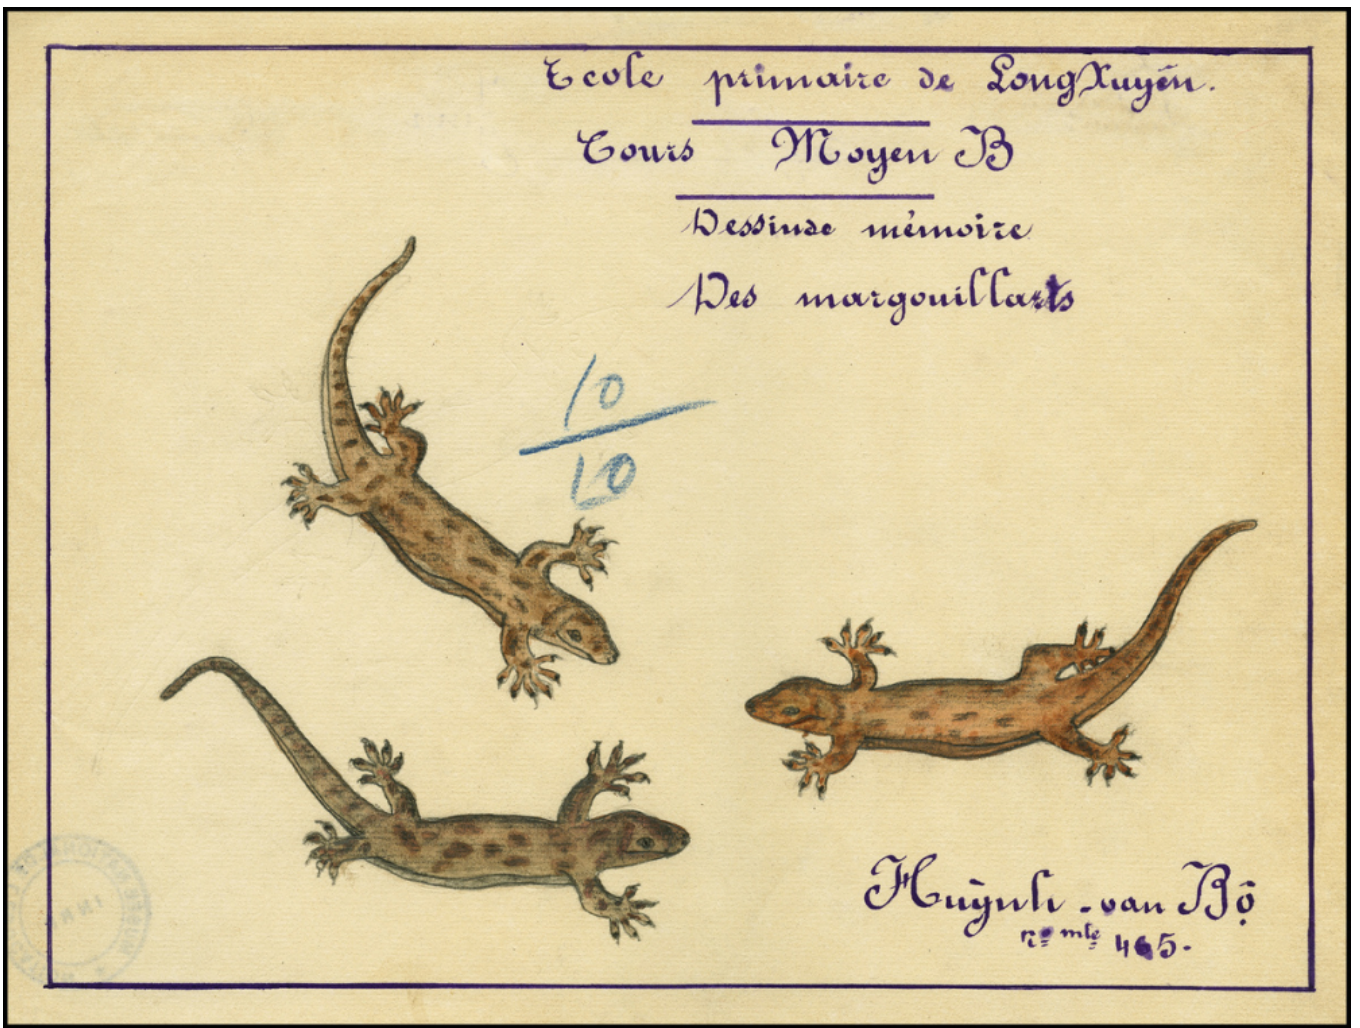 Ecole primaire de LongXuyên.
Cours Moyen B
Dessin de mémoire
Des margouillats
10
10
Huỳnh-van Bộ
nº mle 465.